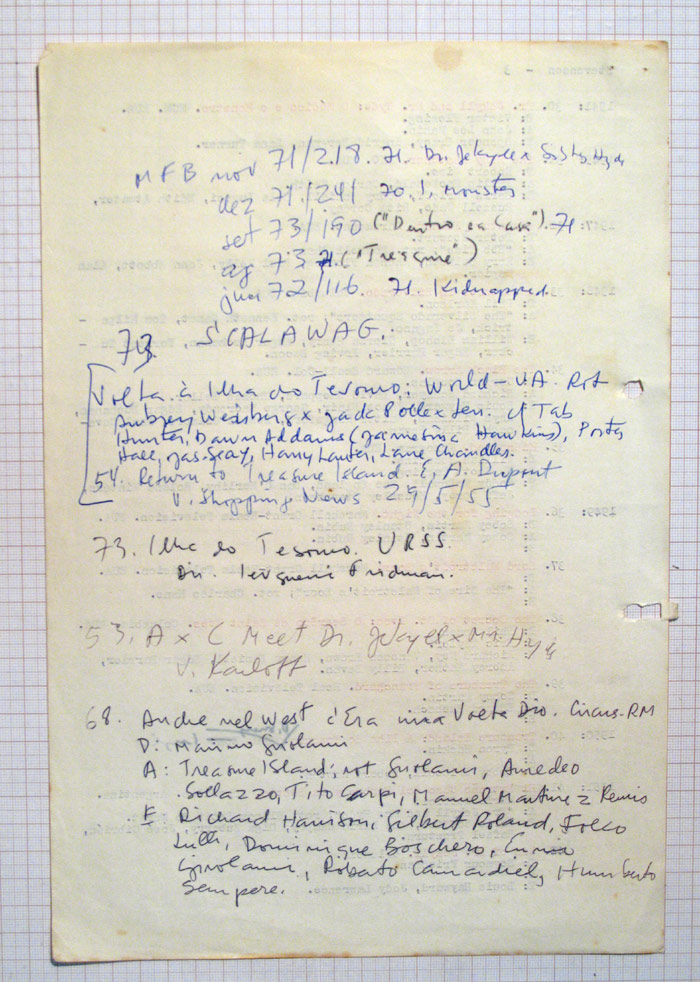 MFB nov 71/218. 71. Dr. Jekyll x Sister Hyde
dez 71/241 70. I, Monster
set 73/190 ("Dentro da Casa"). 71
ag 73 71. ("Treasure")
jun 72/116. 71. Kidnapped.
73. SCALAWAG.
Volta à Ilha do Tesouro. World-UA. Rot
Aubrey Wisberg x Jack Pollexfen. c/ Tab
Hunter, Dawn Addams (Jamesina Hawkins), Porter
Hall, Jas. Seay, Harry Lauter, Lane Chandler.
54. Return to Treasure Island. E. A. Dupont
v. Shopping News 29/5/55
73. Ilha do Tesouro. URSS.
Dir. Ievgueni Fridman.
53. A x C Meet Dr. Jekyll x Mr. Hyde
v. Karloff
68. Anche nel West c'Era una Volta Dio. Circus-RM
D: Marino Girolami
A: Treasure Island; rot Girolami, Amedeo
Sollazzo, Tito Carpi, Manuel Martinez Remis
E Richard Harrison, Gilbert Roland, Folco
Lulli, Dominique Boschero, Ennio
Girolami, Roberto Camardiel, Humberto
Sempere.